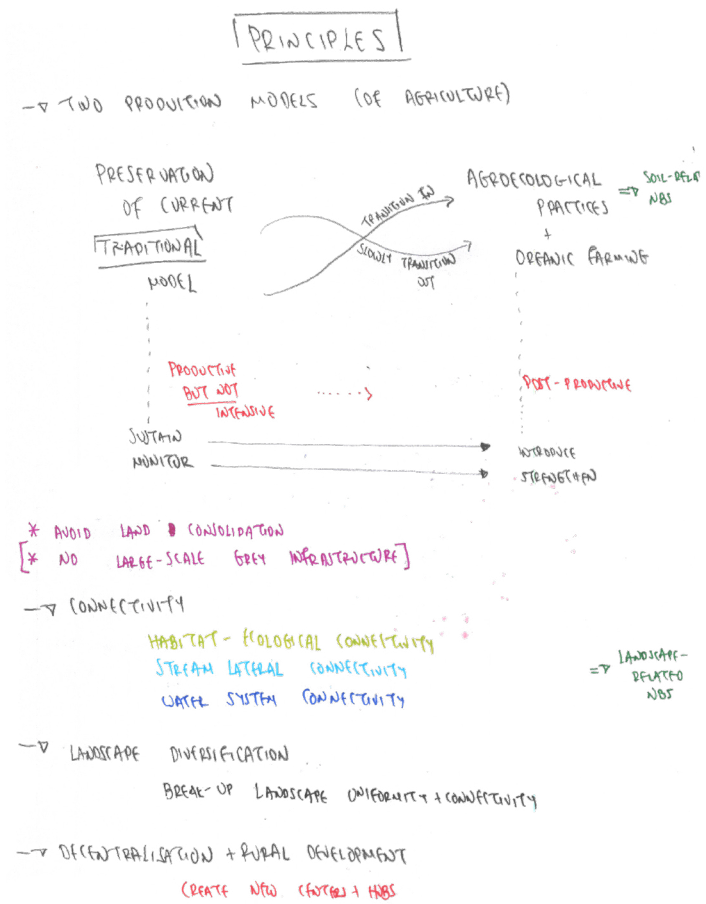 PRINCIPLES
→ TWO PRODUCTION MODELS (OF AGRICULTURE)
PRESERVATION
OF CURRENT
TRADITIONAL
MODEL
TRANSITION IN
SLOWLY TRANSITION
OUT
AGROECOLOGICAL
PRACTICES
+
ORGANIC FARMING
⇒ SOIL-RELA
NBS
PRODUCTIVE
BUT NOT
INTENSIVE
POST-PRODUCTIVE
SUSTAIN
MONITOR
INTRODUCE
STRENGTHEN
* AVOID LAND CONSOLIDATION
[* NO LARGE-SCALE GREY INFRASTRUCTURE]
→ CONNECTIVITY
HABITAT - ECOLOGICAL CONNECTIVITY
STREAM LATERAL CONNECTIVITY
WATER SYSTEM CONNECTIVITY
⇒ LANDSCAPE-
RELATED
NBS
→ LANDSCAPE DIVERSIFICATION
BREAK-UP LANDSCAPE UNIFORMITY + CONNECTIVITY
→ DECENTRALISATION + RURAL DEVELOPMENT
CREATE NEW CENTERS + HUBS